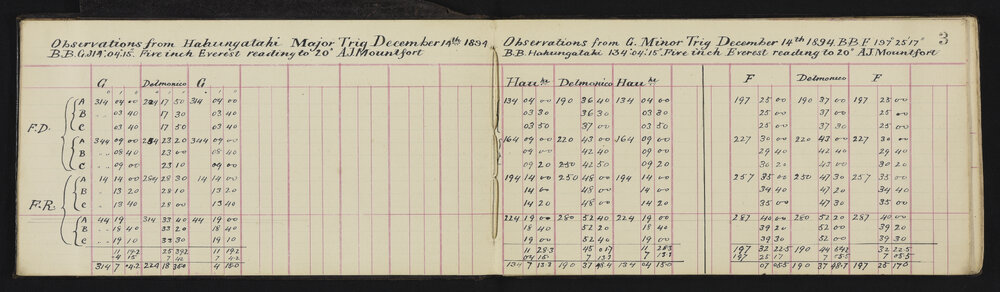 Observations from Hahungatahi Major Trig December 14th 1894
B.B. G. 314° 04' 15". Five inch Everest reading to 20" A J Mountfort
G Delmonico G
° ' " ° ' " ° ' "
F.D. A 314 04 00 224 17 50 314 04 00
B .. 03 40 17 30 03 40
C .. 03 40 17 50 03 40
A 344 09 00 254 23 20 344 09 00
B .. 08 40 23 00 08 40
C .. 09 00 23 10 09 00
F.R. A 14 14 00 284 28 30 14 14 00
B .. 13 20 28 10 13 20
C .. 13 40 28 00 13 40
A 44 19 314 33 40 44 19 00
B .. 18 40 33 20 18 40
C .. 19 10 33 30 19 10
314 7 224 18 4 15.0
3
Observations from G. Minor Trig December 14th 1894. B.B. F 197° 25' 17"
B.B. Hahungatahi 134° 04' 15". Five inch Everest reading to 20" A J Mountfort
Hau hi Delmonico Hau hi F Delmonico F
134 04 00 190 36 40 134 04 00 197 25 00 190 37 00 197 25 00
03 30 36 30 03 30 25 00 37 00 25 00
03 50 37 00 03 50 25 00 37 30 25 00
164 09 00 220 43 00 164 09 00 227 30 00 220 43 00 227 30 00
09 00 42 40 09 00 29 40 42 40 29 40
09 20 250 42 50 09 20 30 20 43 00 30 20
194 14 00 250 48 00 194 14 00 257 35 00 250 47 30 257 35 00
14 00 48 00 14 00 34 40 47 20 34 40
14 20 48 00 14 20 35 00 48 00 35 00
224 19 00 280 52 40 224 19 00 287 40 00 280 52 20 287 40 00
18 40 52 40 18 40 39 20 52 00 39 20
19 00 52 40 19 00 39 30 52 00 39 30
197 32 22.5 190 44 32 22.5
197 25 17 7 05.5 7 05.5
134 7 13.3 190 37 134 04 15.0 07 05.5 190 37 197 25 17.0